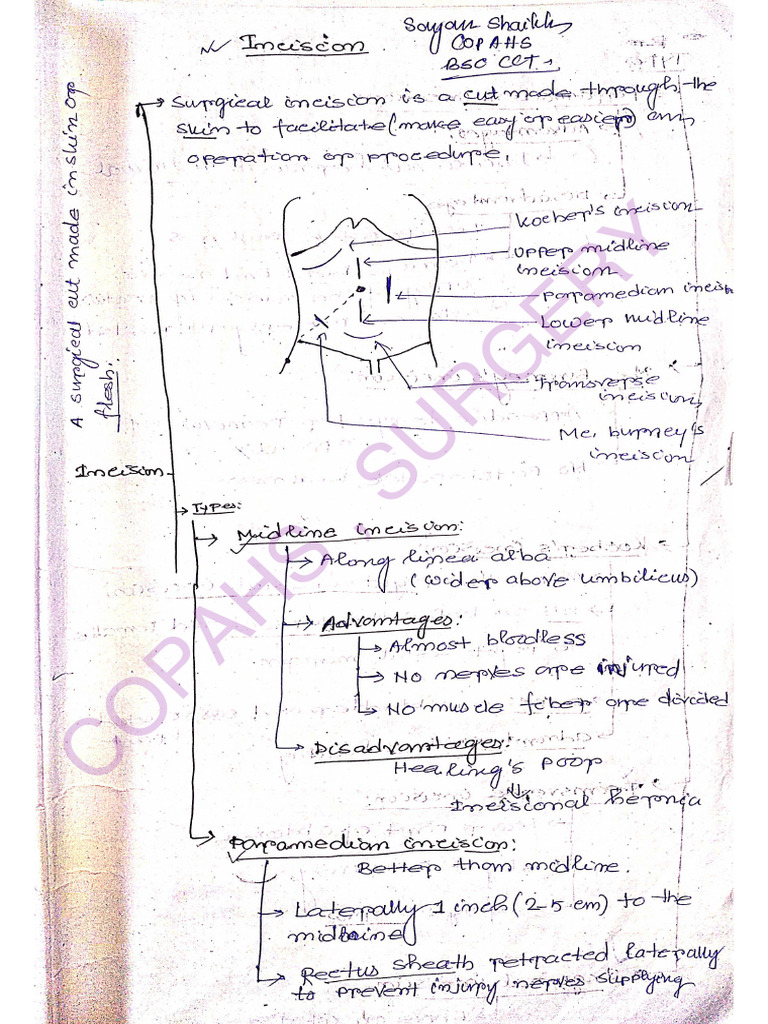 Incision
Soyan Shaikh
COPAHS
BSC CCT
A surgical cut made in skin or
flesh.
Surgical incision is a cut made through the
skin to facilitate (make easy or easier) an
operation or procedure.
Kocher's incision
Upper midline
incision
Paramedian incis
Lower midline
incision
Transverse
incision,
Mc. burney's
incision
Incision
Types:
Midline incision:
Along linea alba
(wider above umbilicus)
Advantages:
Almost bloodless
No nerves are injured
No muscle fiber are divided
Disadvantages:
Healing's poor
Incisional hernia
Paramedian incision:
Better than midline.
Laterally 1 inch (2-5 cm) to the
midline
Rectus sheath retracted laterally
to prevent injury nerves supplying
COPAHS SURGERY